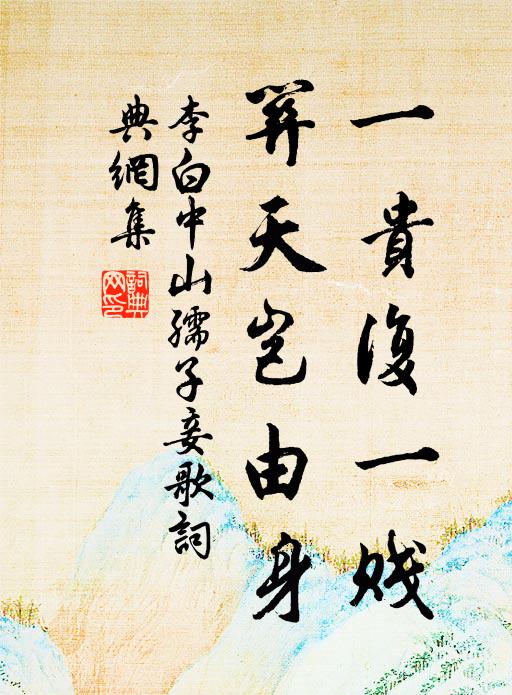 一貴復一賤
關天豈由身
李白中山孺子妾歌詞
典網集
詞典
网印